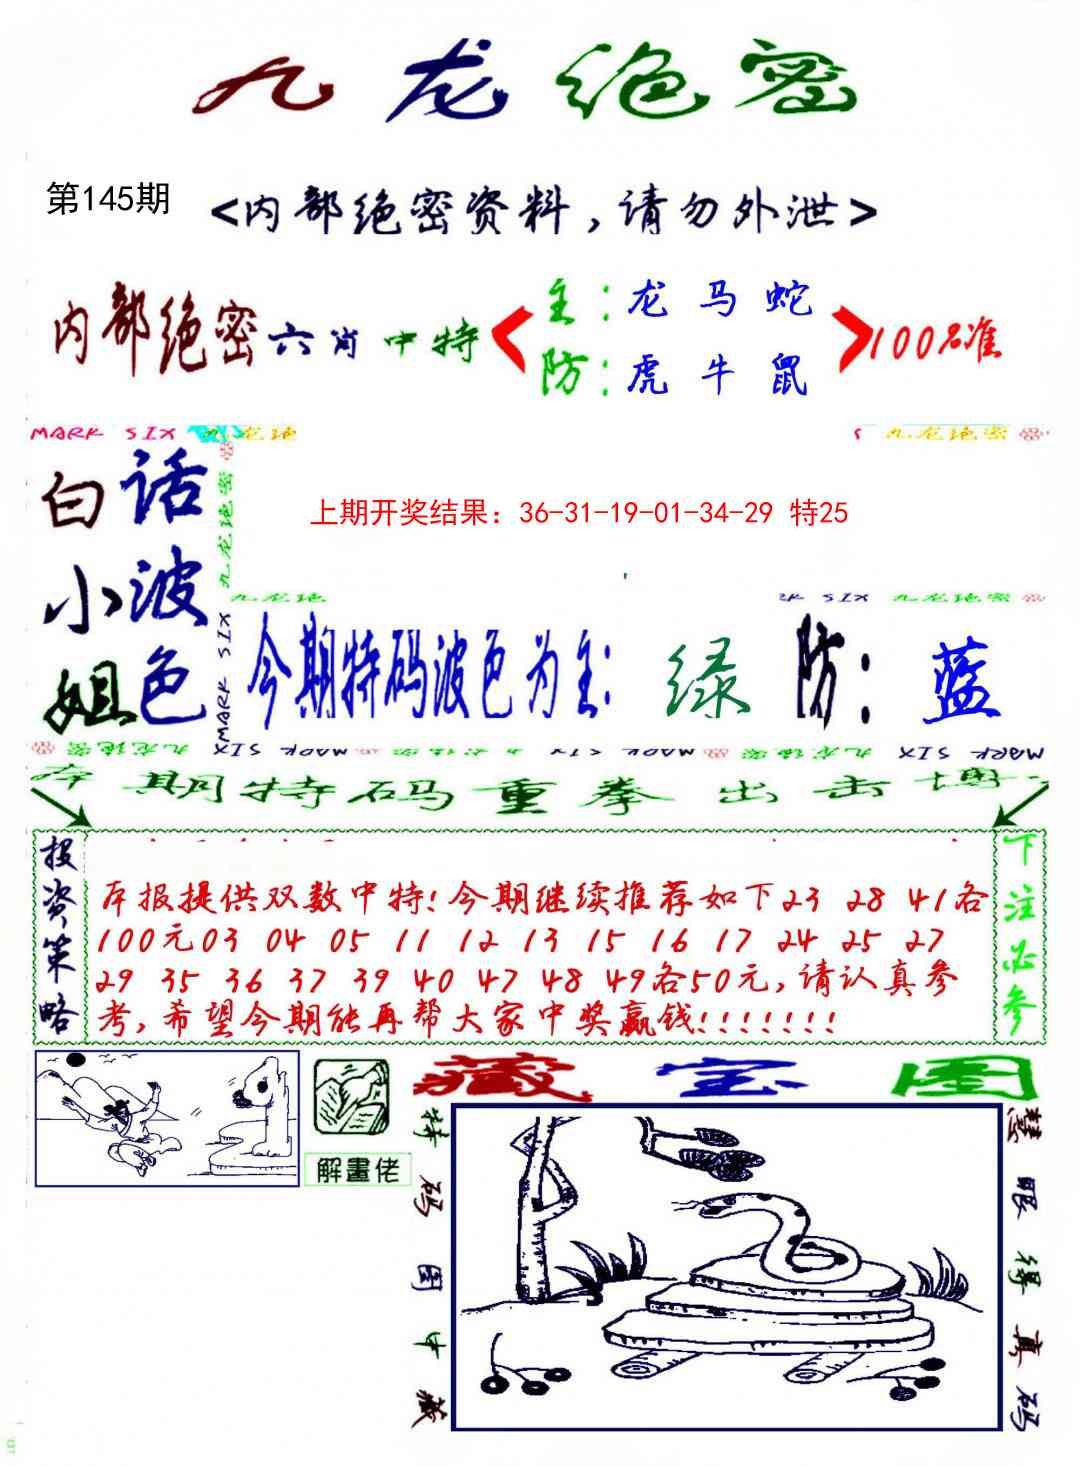 九龙绝密
第145期
<内部绝密资料,请勿外泄>
内部绝密六肖中特
主:龙 马 蛇
防:虎 牛 鼠
100%准
MARK SIX 九龙绝
九龙绝密
白话
小波
姐色
九龙绝密
MARK SIX
上期开奖结果：36-31-19-01-34-29 特25
九龙绝
RK SIX 九龙绝密
今期特码波色为主: 绿 防: 蓝
九龙绝密 MARK SIX MARK SIX 九龙绝密 MARK SIX MARK SIX 九龙绝密 MARK SIX MARK
本期特码重拳出击博
投资策略
本报提供双数中特!今期继续推荐如下23 28 41各
100元03 04 05 11 12 13 15 16 17 24 25 27
29 35 36 37 39 40 47 48 49各50元,请认真参
考,希望今期能再帮大家中奖赢钱!!!!!!!
下注必参
解畫佬
藏宝图
特码图中藏
慧眼得真码